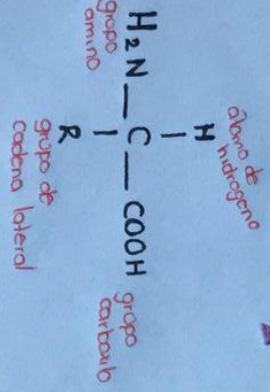 átomo de
hidrógeno
H
H₂N — C — COOH
grupo
amino
grupo
carboxilo
R
grupo de
cadena lateral